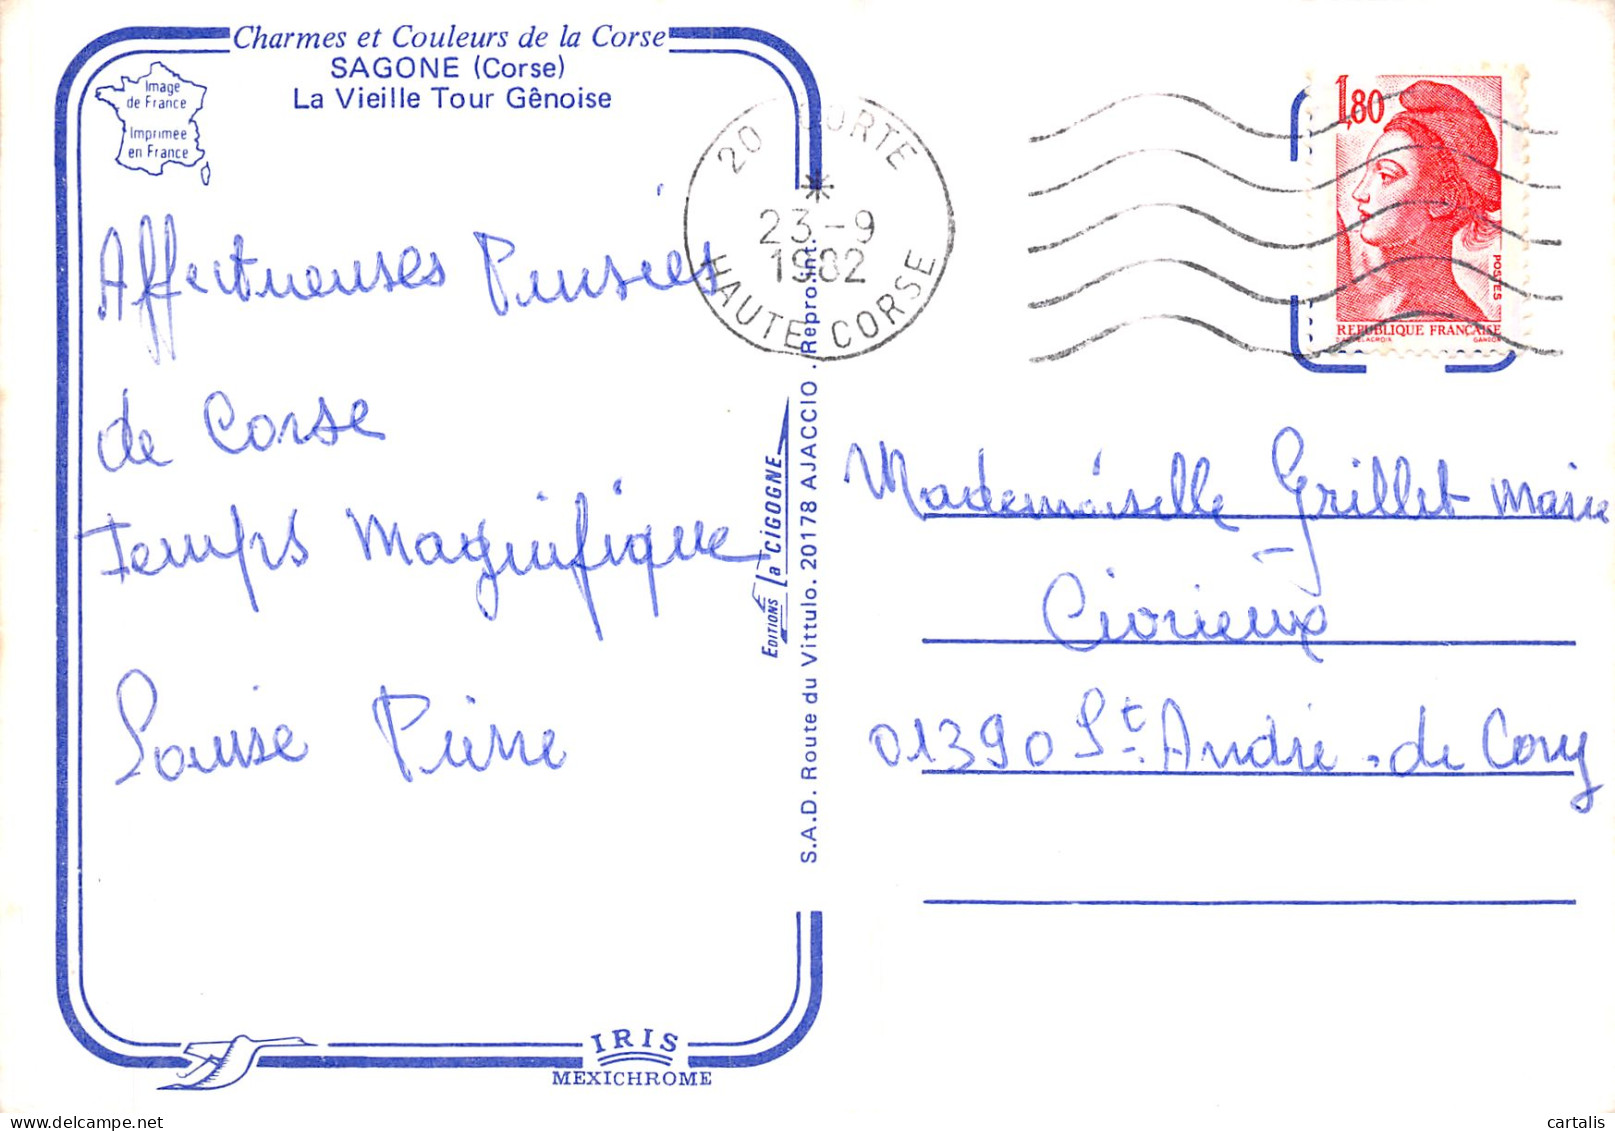 Charmes et Couleurs de la Corse
SAGONE (Corse)
La Vieille Tour Gênoise
Image
de France
Imprimée
en France
Affectueuses Pensées
de Corse
Temps Magnifique
Louise Pierre
20 CORTE
23-9
1982
HAUTE CORSE
EDITIONS la CIGOGNE
S.A.D. Route du Vittulo. 20178 AJACCIO . Repro. int.
1,80
POSTES
REPUBLIQUE FRANÇAISE
D'AP. DELACROIX GANDON
Mademoiselle Grillet Marie
Civrieux
01390 St André-de Corcy
IRIS
MEXICHROME
cartalis